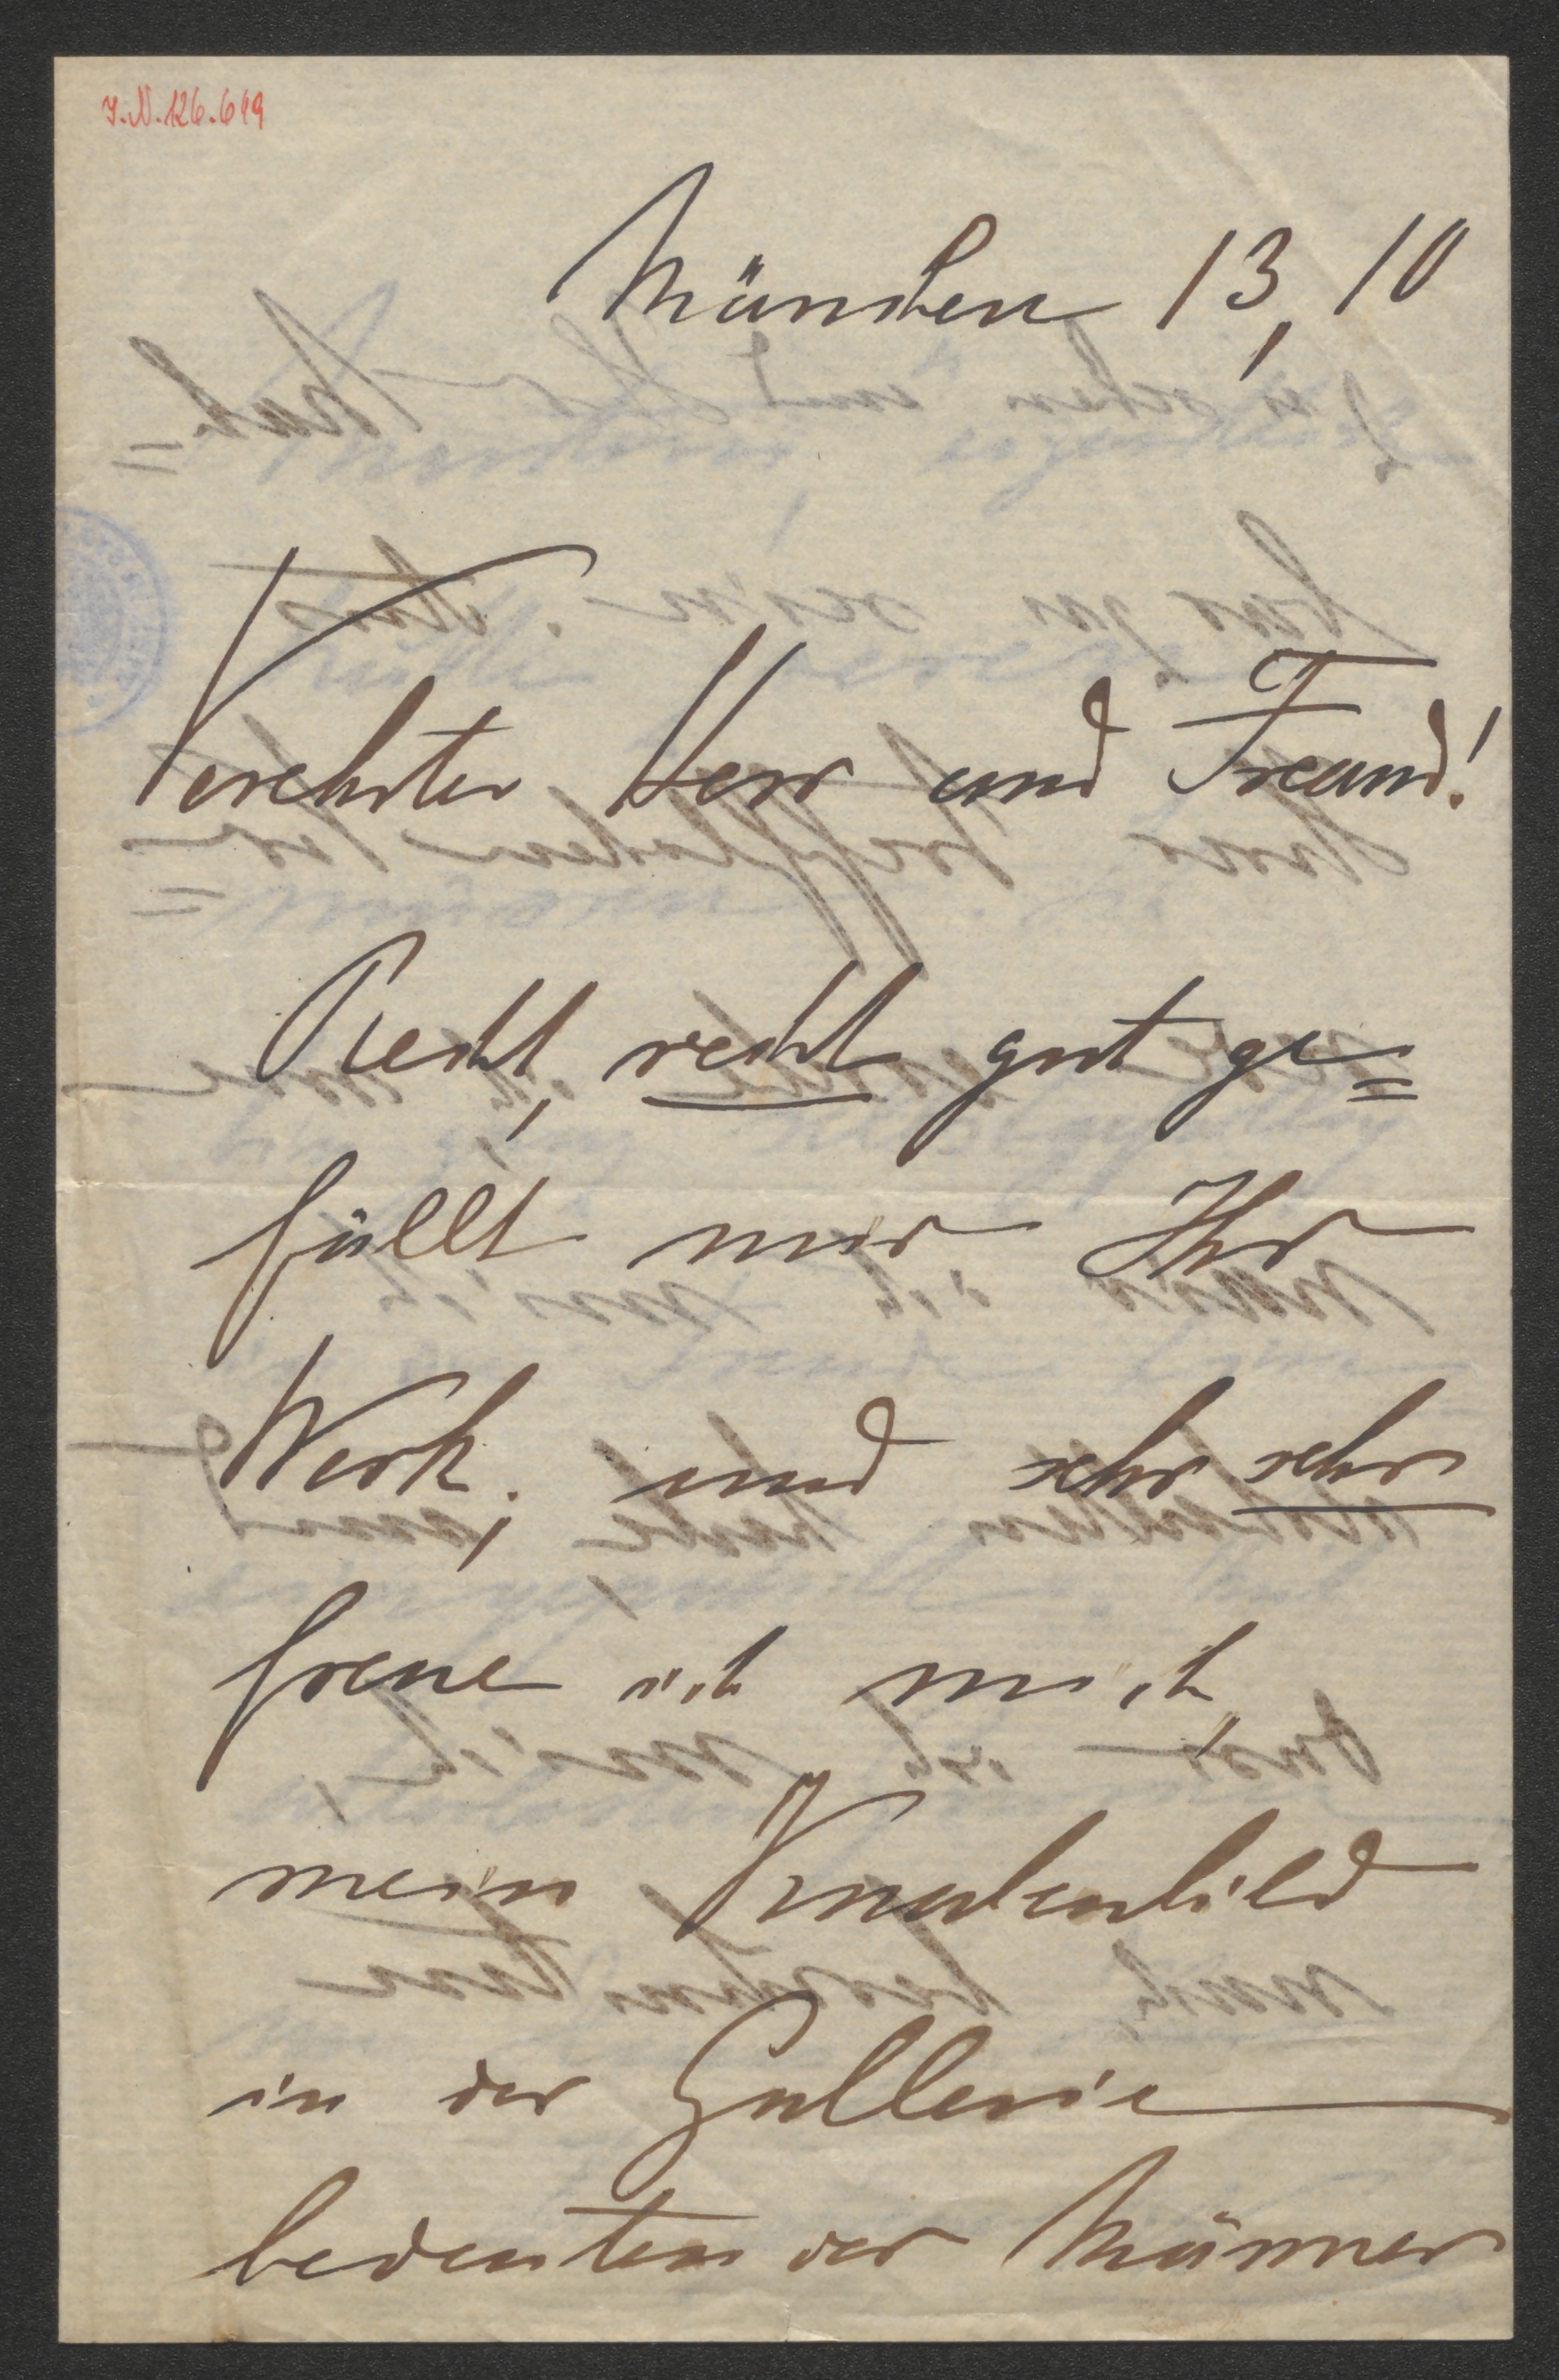 J.N. 126.699
München 13, 10
Verehrter Herr und Freund!
Recht, recht gut ge=
fällt mir Ihr
Werk; und sehr sehr
freue ich mich,
mein Knabenbild
in der Gallerie
bedeutender Männer